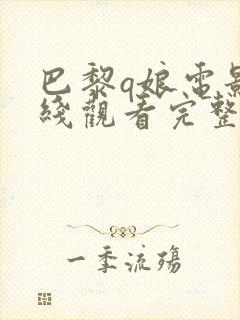 巴黎q娘電影
綫觀看完整
一季流殤